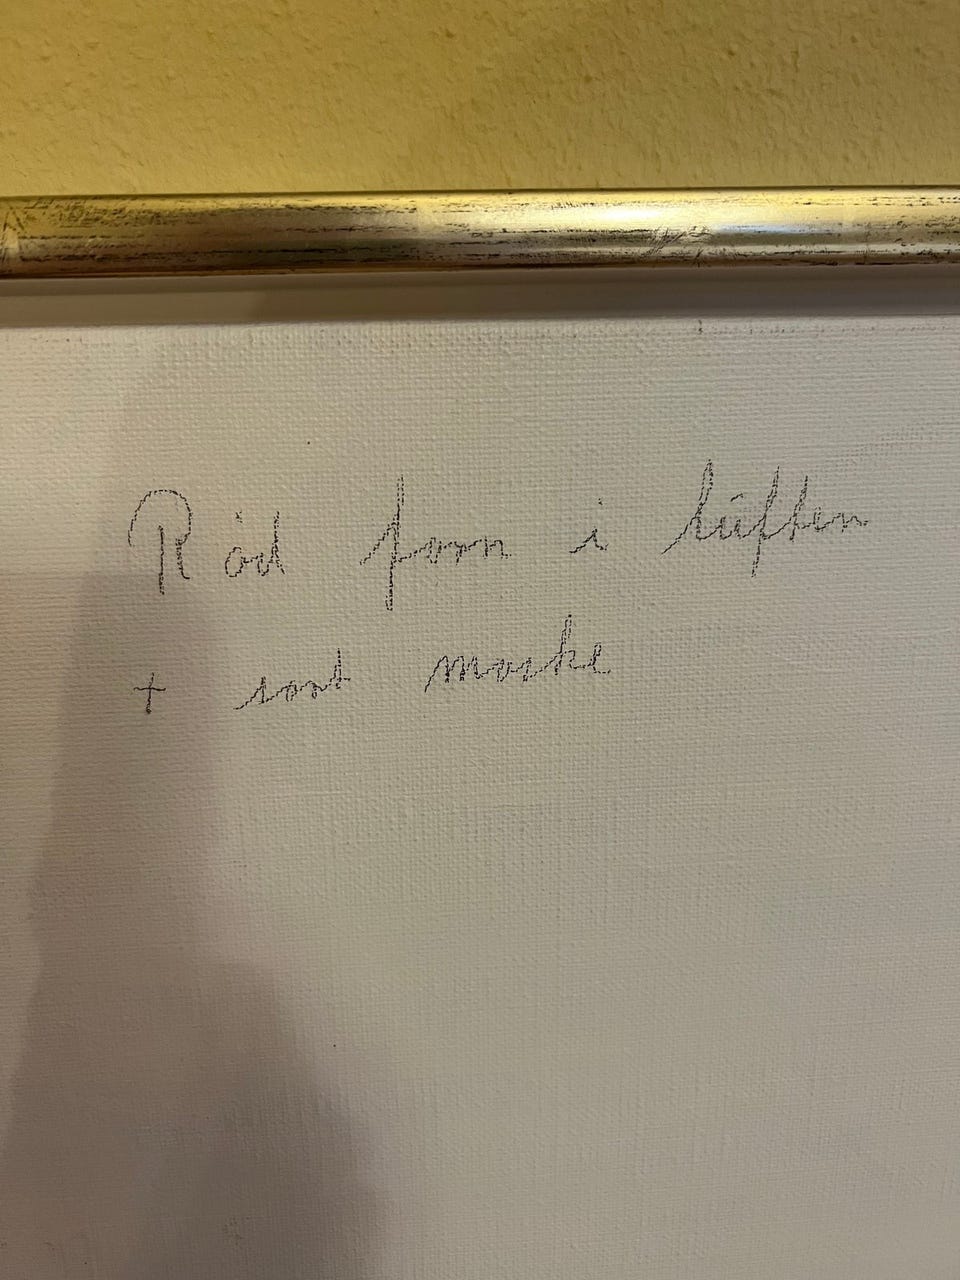 Röd form i lüften
+ sort maske